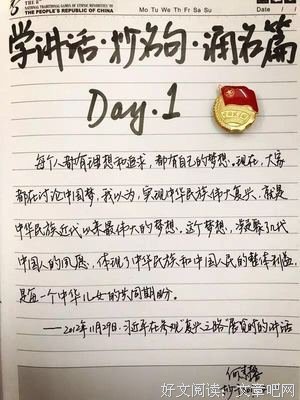 THE 8th
NATIONAL TRADITIONAL GAMES OF ETHNIC MINORITIES OF
THE PEOPLE'S REPUBLIC OF CHINA
Mo Tu We Th Fr Sa Su
Date / /
学讲话·抄名句·诵名篇
Day.1
每个人都有理想和追求，都有自己的梦想。现在，大家
都在讨论中国梦，我以为，实现中华民族伟大复兴，就是
中华民族近代以来最伟大的梦想。这个梦想，凝聚了几代
中国人的夙愿，体现了中华民族和中国人民的整体利益，
是每一个中华儿女的共同期盼。
——2012年11月29日，习近平在参观"复兴之路"展览时的讲话
好文阅读：文章吧网